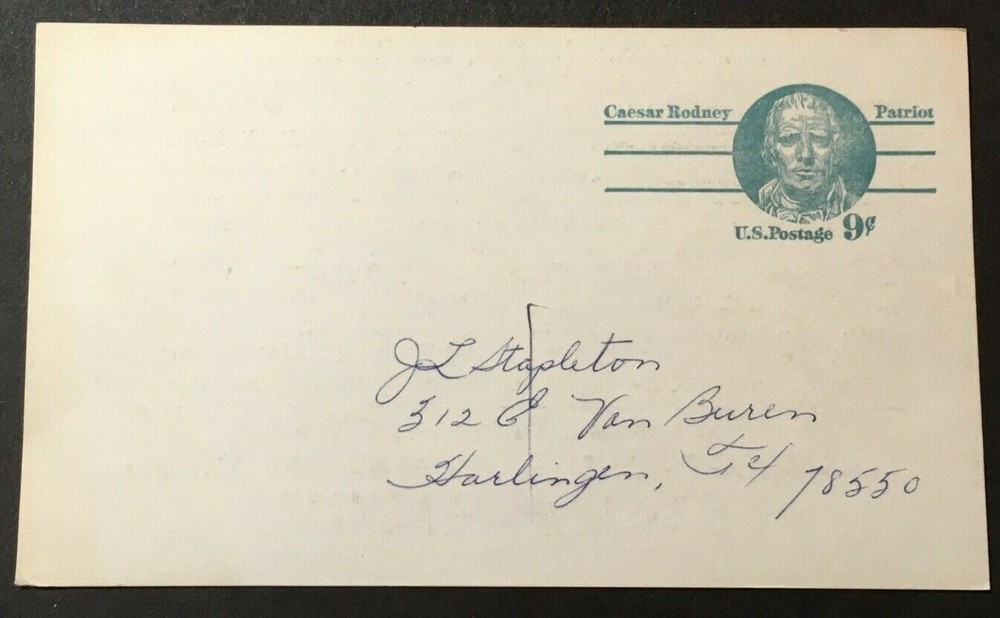 Caesar Rodney Patriot
U.S.Postage 9¢
JL Stapleton
312 E Van Buren
Harlingen, TX 78550